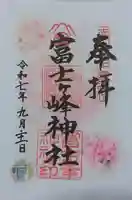 奉拝
富士ヶ峰神社
令和七年九月十二日